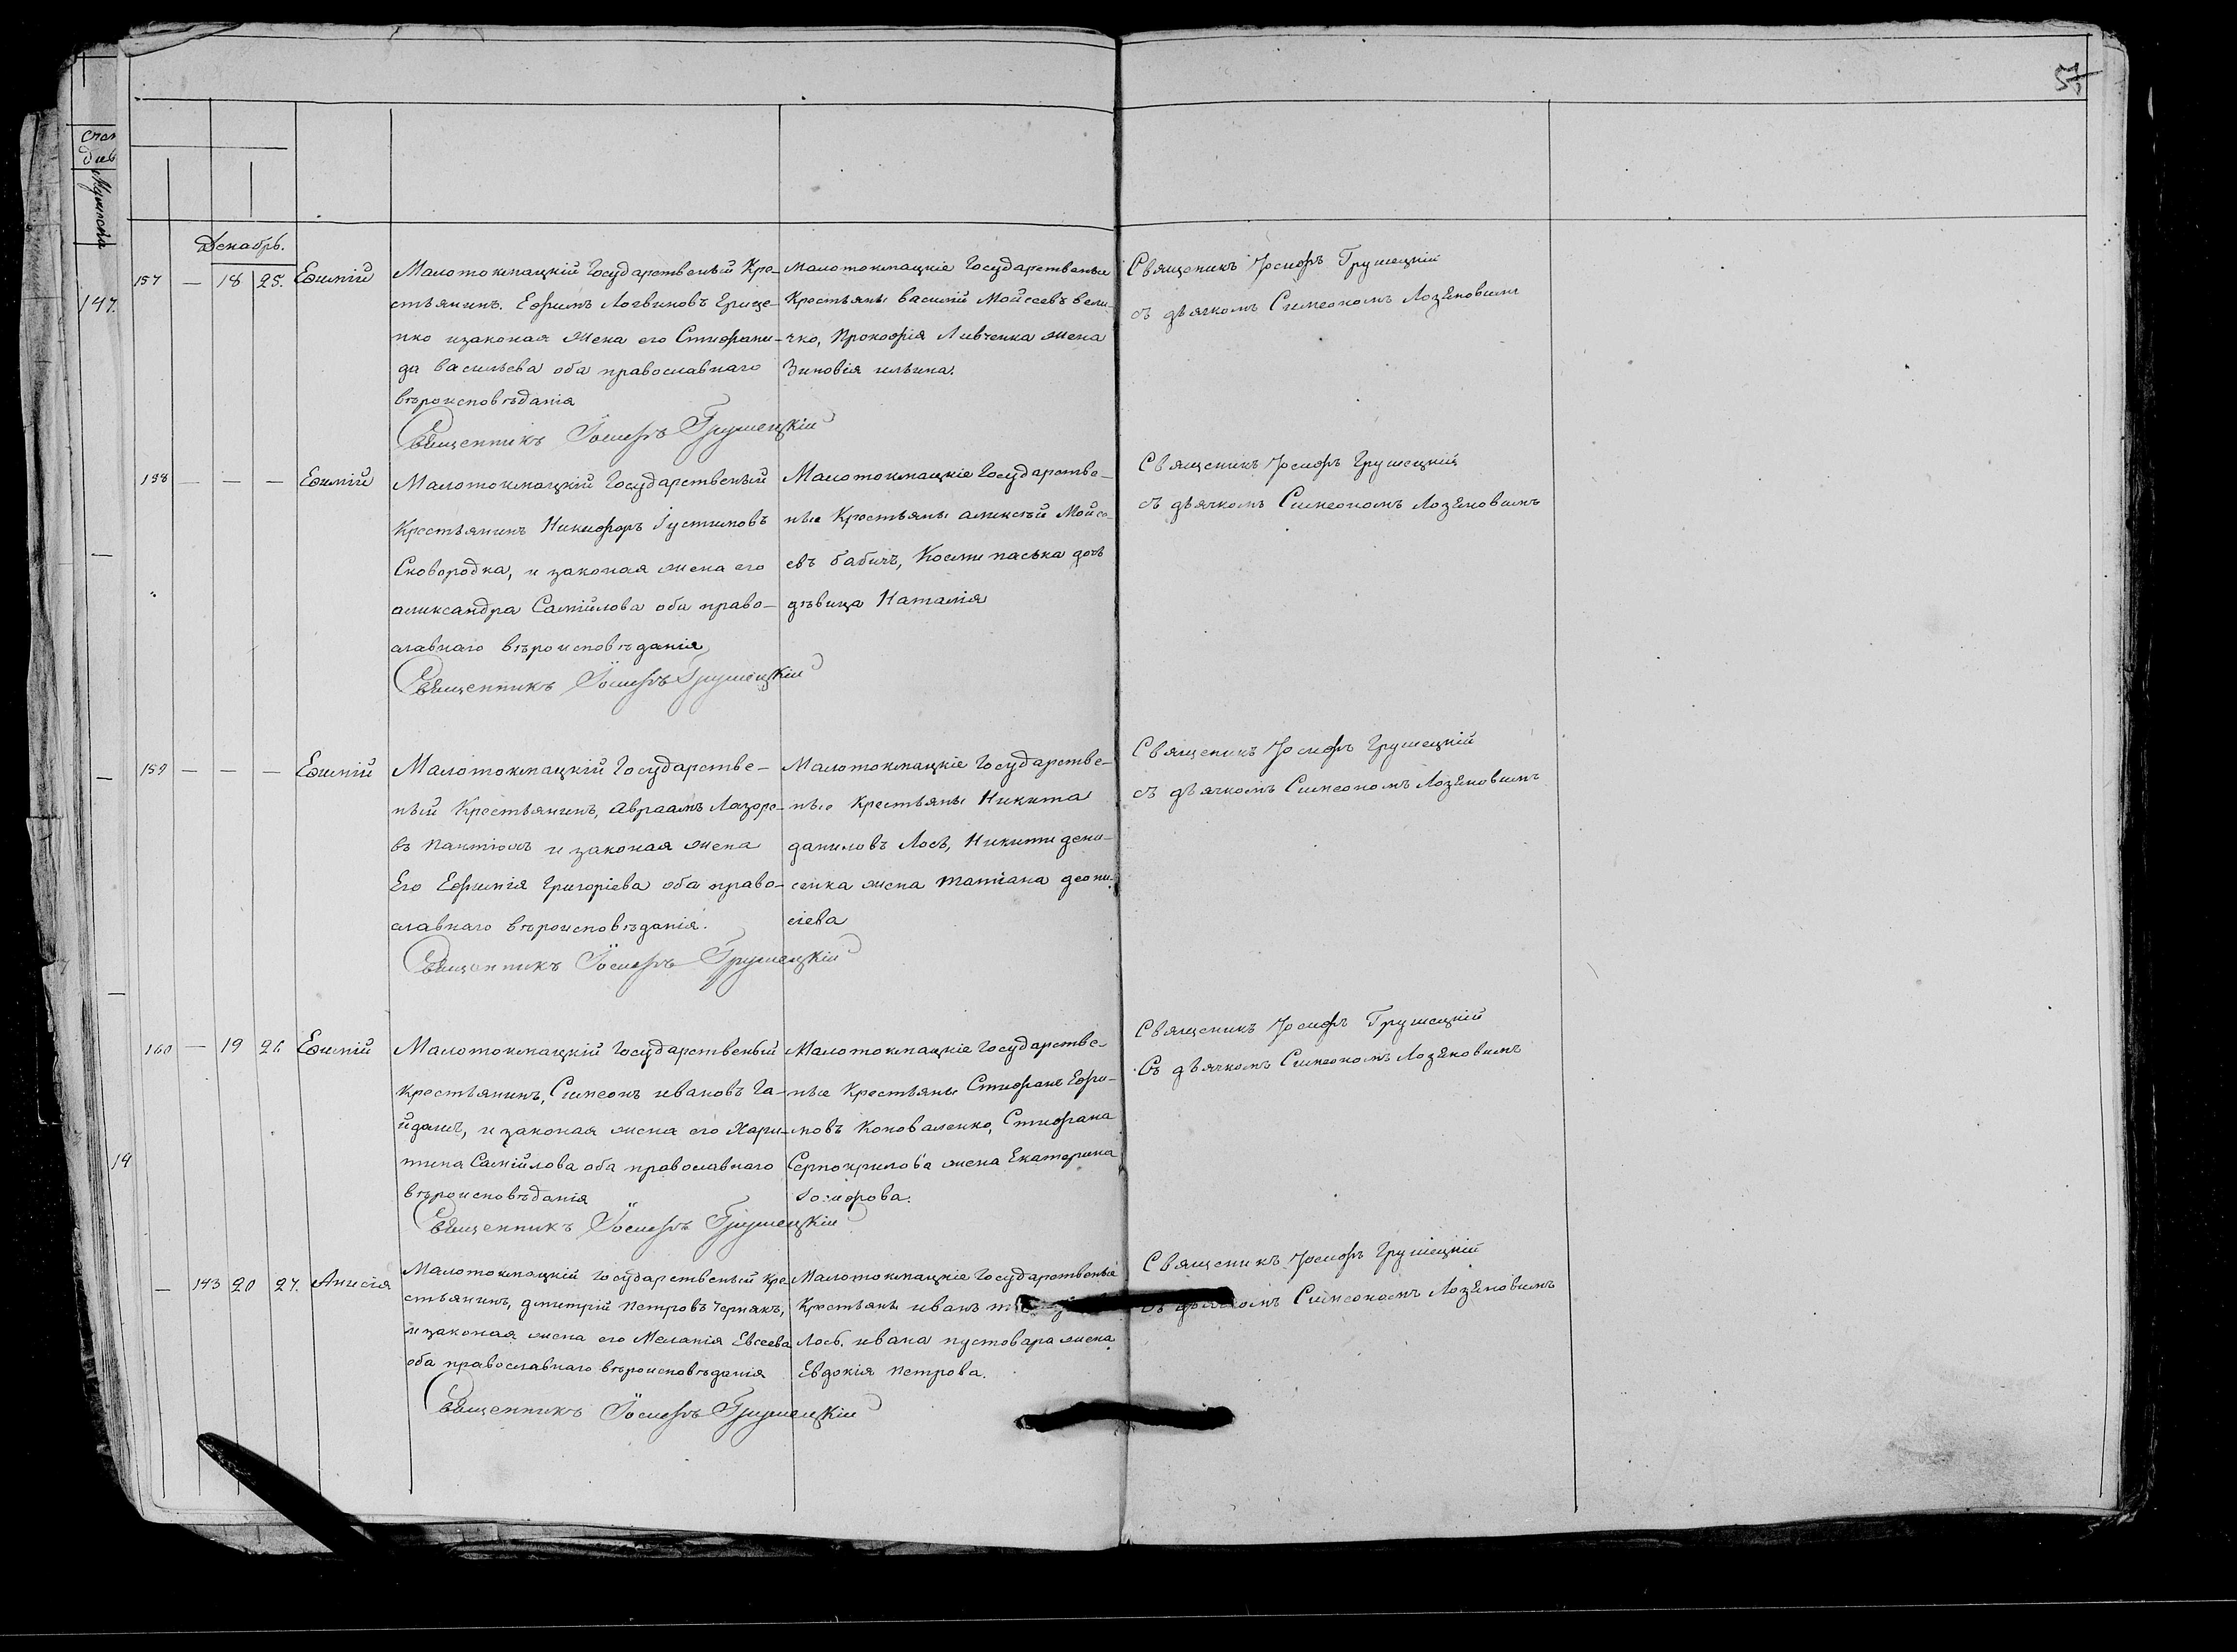 57
147.
Декабрь.
157 — 18 25. Евѳимій
Малотокмацкій Государственый Кре-
стьянинъ. Ефимъ Логвиновъ Грице-
нко изаконая жена его Стифани-
да васильева оба православнаго
вѣроисповѣданія
Священникъ Іосифъ Грушецкій
малотокмацкіе Государственые
Крестьяне василій Мойсеевъ вели-
чко, Прокофія Ливченка жена
Зиновія ильина.
Священикъ Іосифъ Грушецкій
съ дѣячкомъ Симеономъ Лозѣновимъ
158 — — — Евѳимій
Малотокмацкій Государственый
Крестьянинъ Никифоръ Іустиновъ
Сковородка, и законая жена его
александра Самійлова оба право-
славнаго вѣроисповѣданія
Священникъ Іосифъ Грушецкій
Малотокмацкіе Государстве-
ные Крестьяне аликсѣй Мойсе-
евъ бабичъ, Косми паська дочь
дѣвица Наталія
Священикъ Іосифъ Грушецкій
съ дѣячкомъ Симеономъ Лозѣновимъ
159 — — — Евѳимій
Малотокмацкій Государстве-
ный Крестьянинъ, авраамъ Лазоре-
въ Пантюхъ и законая жена
Его Ефимія Григоріева оба право-
славнаго вѣроисповѣданія.
Священникъ Іосифъ Грушецкій
Малотокмацкіе Государстве-
ные Крестьяне Никита
даниловъ Лось, Никити дени-
сенка жена татіана деони-
сіева
Священикъ Іосифъ Грушецкій
съ дѣячкомъ Симеономъ Лозѣновимъ
160 — 19 26 Евѳимій
Малотокмацкій Государственый
крестьянинъ, Симеонъ ивановъ Га-
йдашъ, и законая жена его Хари-
тина Самійлова оба православнаго
вѣроисповѣданія
Священникъ Іосифъ Грушецкій
Малотокмацкіе Государстве-
ные Крестьяне Стифане Ефи-
мовъ Коноваленко, Стифана
Серпокрилова жена Екатерина
Священикъ Іосифъ Грушецкій
Съ дѣячкомъ Симеономъ Лозѣновимъ
19
— 143 20 27. Анисія
Малотокмацкій государственый кре
стьянинъ, дмитрій Петровъ Чернякъ,
и законая жена его Меланія Евсеева
оба православнаго вѣроисповѣданія
Священникъ Іосифъ Грушецкій
Малотокмацкіе Государственые
Крестьяне иванъ
Лось. ивана пустовара жена
Евдокія Петрова.
Священикъ Іосифъ Грушецкій
Съ дѣячкомъ Симеономъ Лозѣновимъ